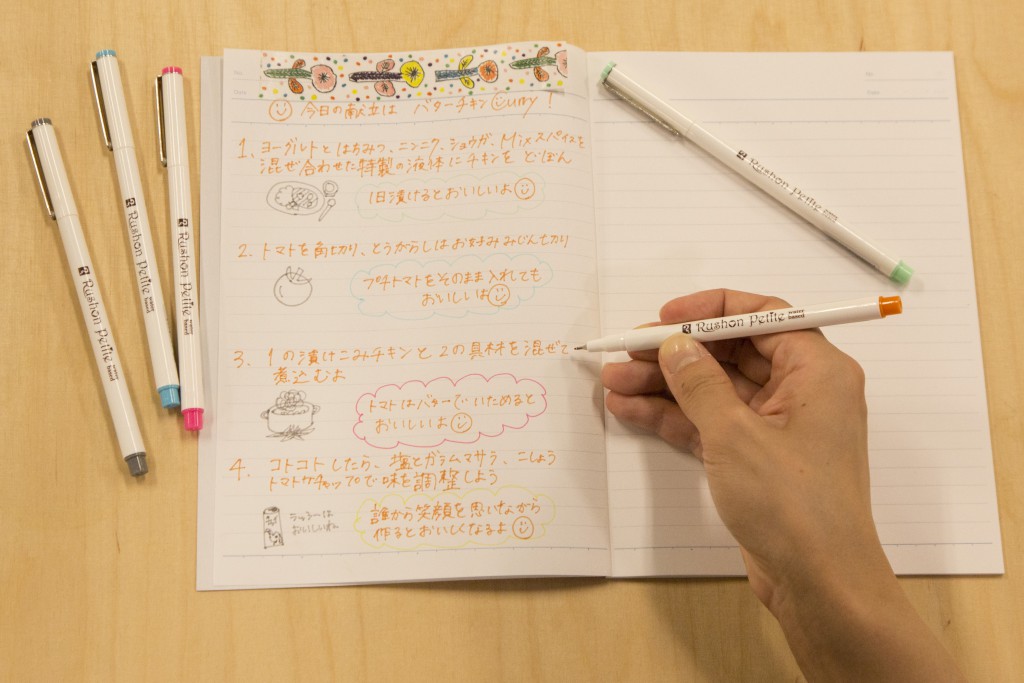 今日の献立は バターチキン Curry !
1. ヨーグルトとはちみつ、ニンニク、ショウガ、Mixスパイスを
混ぜ合わせた特製の液体にチキンを どぼん
1日漬けるとおいしいよ
2. トマトを角切り、とうがらしはお好みみじん切り
プチトマトをそのまま入れても
おいしいよ
3. 1の漬けこみチキンと 2の具材を混ぜて
煮込むよ
トマトはバターでいためると
おいしいよ
4. コトコトしたら、塩とガラムマサラ、こしょう
トマトケチャップで味を調整しよう
ラッシーは
おいしいよね
誰かの笑顔を思いながら
作るとおいしくなるよ
Rushon Petite water based
Rushon Petite water based
Rushon Petite water based
Rushon Petite water based
Rushon Petite water based